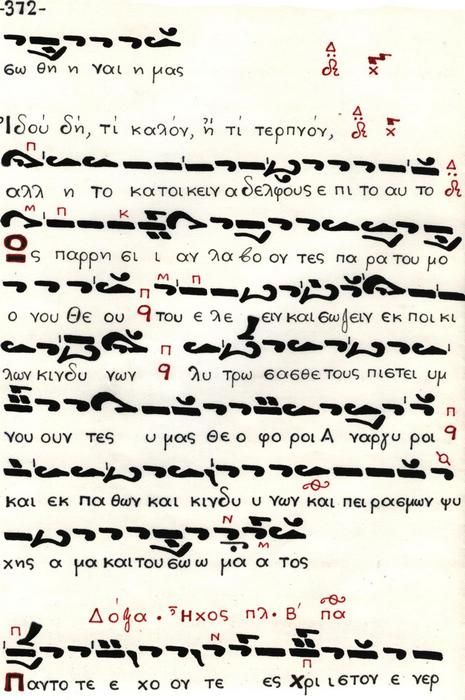 -372-
σω θη η ναι η μας
Ἰδού δή, τί καλόν, ἤ τί τερπνόν,
αλλ η το κατοικειν αδελφους ε πι το αυ το
Ος παρρη σι ι αν λα βο ον τες πα ρα του μο
ο νου Θε ου του ε λε ειν και σωζειν εκ ποι κι
λων κινδυ νων λυ τρω σασθε τους πιστει υμ
νου ουν τες υ μας θε ο φο ροι Α ναργυ ροι
και εκ πα θων και κινδυ υ νων και πει ρασμων ψυ
χης α μα και του σω ω μα α τος
Δόξα · Ἦχος πλ· Β΄ πα
Παντο τε ε χο ον τε ες Χρι ιστον ε νερ